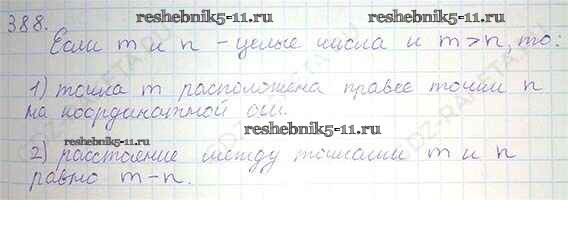 reshebnik5-11.ru
388.
Если m и n - целые числа и m > n, то:
reshebnik5-11.ru
1) точка m расположена правее точки n
на координатной оси.
reshebnik5-11.ru
2) расстояние между точками m и n
равно m - n.
reshebnik5-11.ru